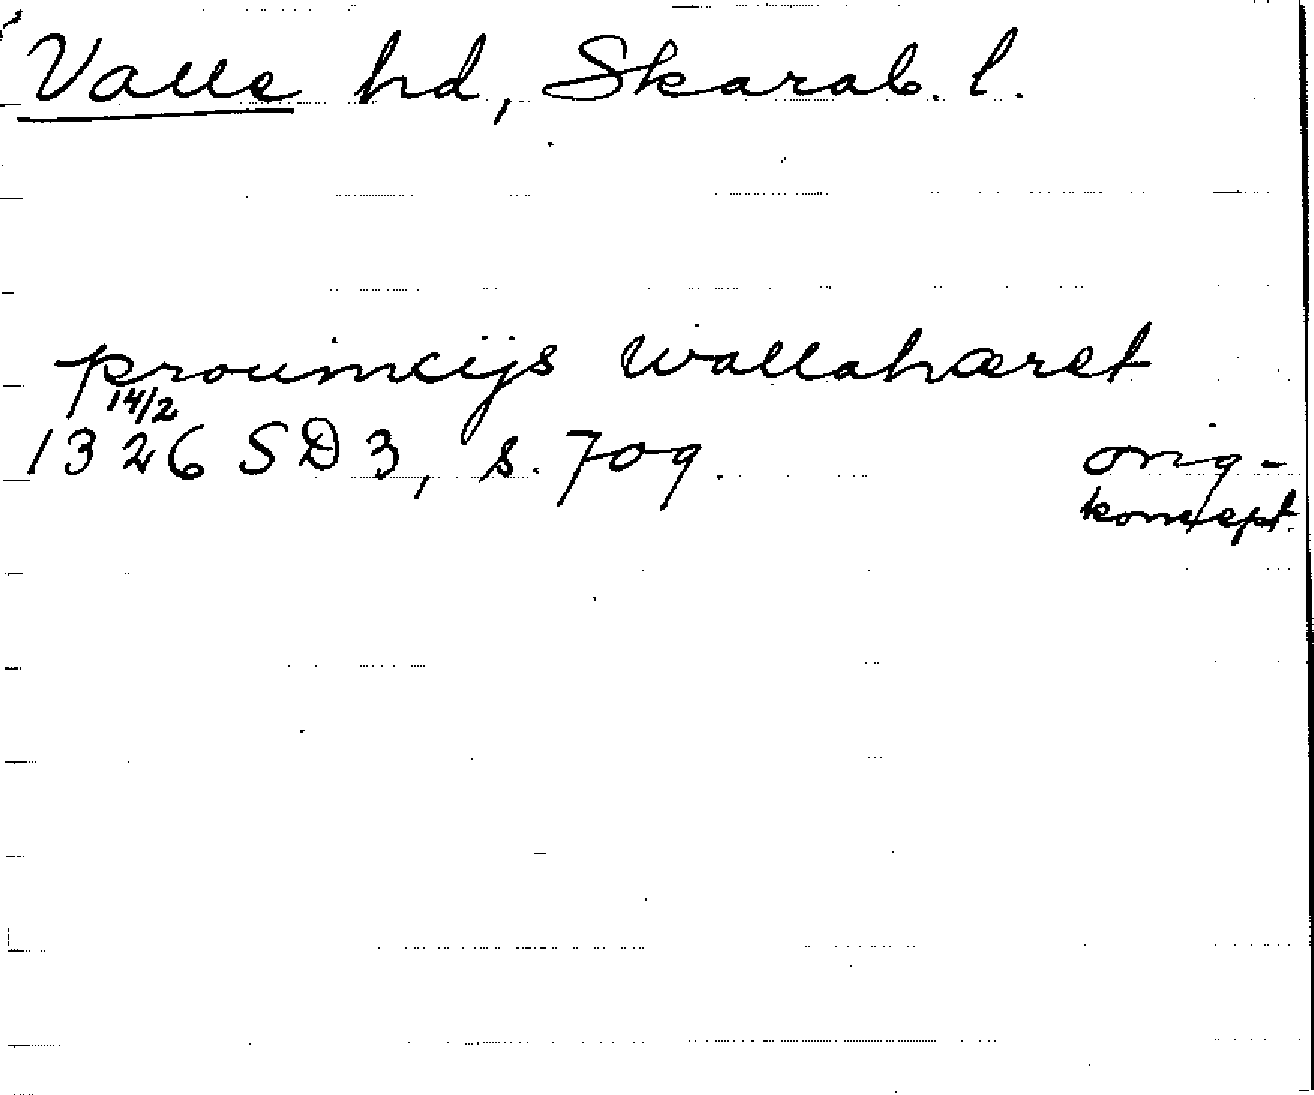 Valle hd, Skarab. l.
prouincijs wallahæret
14/2
1326 SD 3, s. 709.
orig-
koncept.